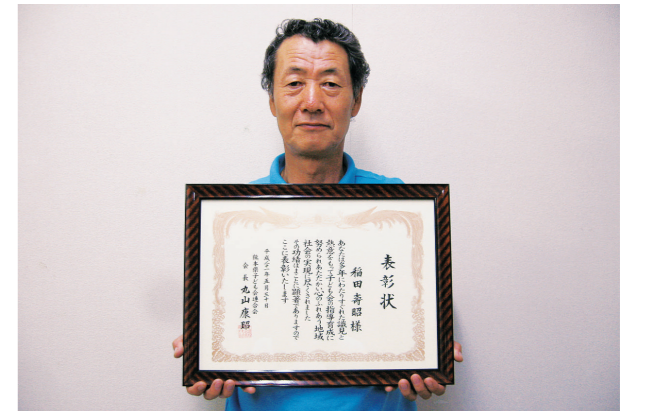 表彰状
稲田寿昭様
あなたは多年にわたりすぐれた識見と
熱意をもって子ども会の指導育成に
努められあたたかい心のふれあう地域
社会の実現に尽くされました
その功績はまことに顕著でありますので
ここに表彰いたします
平成二十一年五月三十日
熊本県子ども会連合会
会長 丸山康昭